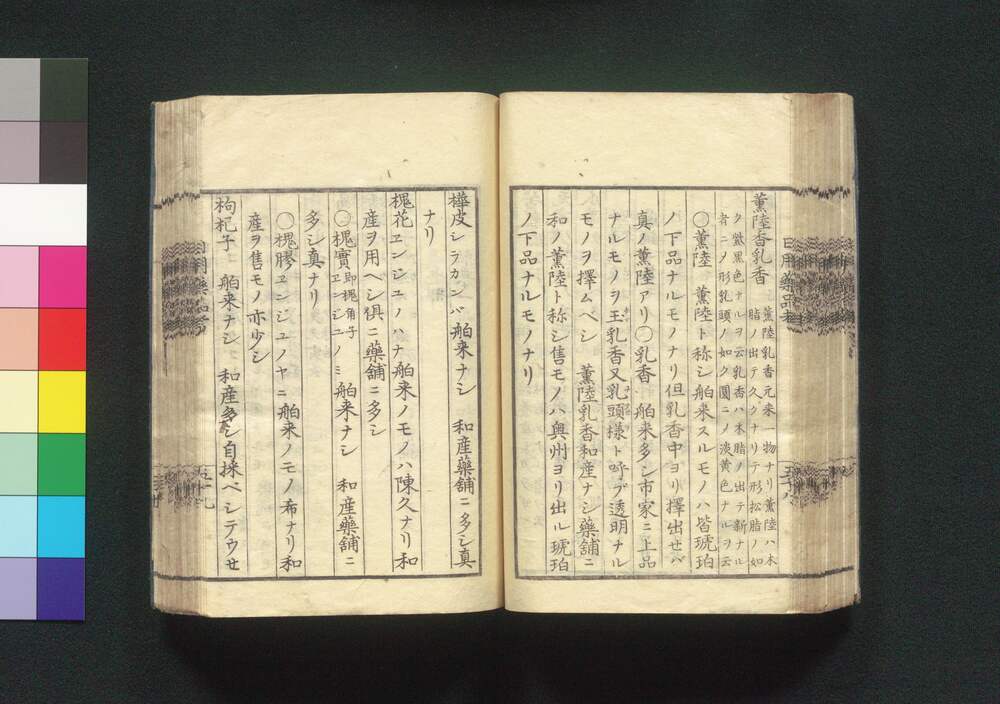 薫陸香乳香 薫陸乳香元来一物ナリ薫陸ハ木
脂ノ出テ久クナリテ形松脂ノ如
ク黒色ナルヲ云乳香ハ木脂ノ出テ新ナル
者ニノ形乳頭ノ如ク圓ニノ淡黄色ナルヲ云
〇薫陸 薫陸ト称シ舶来スルモノハ皆琥珀
ノ下品ナルモノナリ但乳香中ヨリ擇出セバ
真ノ薫陸アリ〇乳香 舶来多シ市家ニ上品
ナルモノヲ玉乳香又乳頭様ト呼ブ透明ナル
モノヲ擇ムベシ 薫陸乳香和産ナシ藥舗ニ
和ノ薫陸ト称シ售モノハ奥州ヨリ出ル琥珀
ノ下品ナルモノナリ
日用藥品考
五十八
樺皮 シラカンバ 舶来ナシ 和産藥舗ニ多シ真
ナリ
槐花 ヱンジュノハナ 舶来ノモノハ陳久ナリ和
産ヲ用ヘシ倶ニ藥舗ニ多シ
〇槐實 即槐角子 ヱンジユノミ 舶来ナシ 和産藥舗ニ
多シ真ナリ
〇槐膠 ヱンジユノヤニ 舶来ノモノ希ナリ和
産ヲ售モノ亦少シ
枸杞子 舶来ナシ 和産多シ自採ベシテウセ
五十九